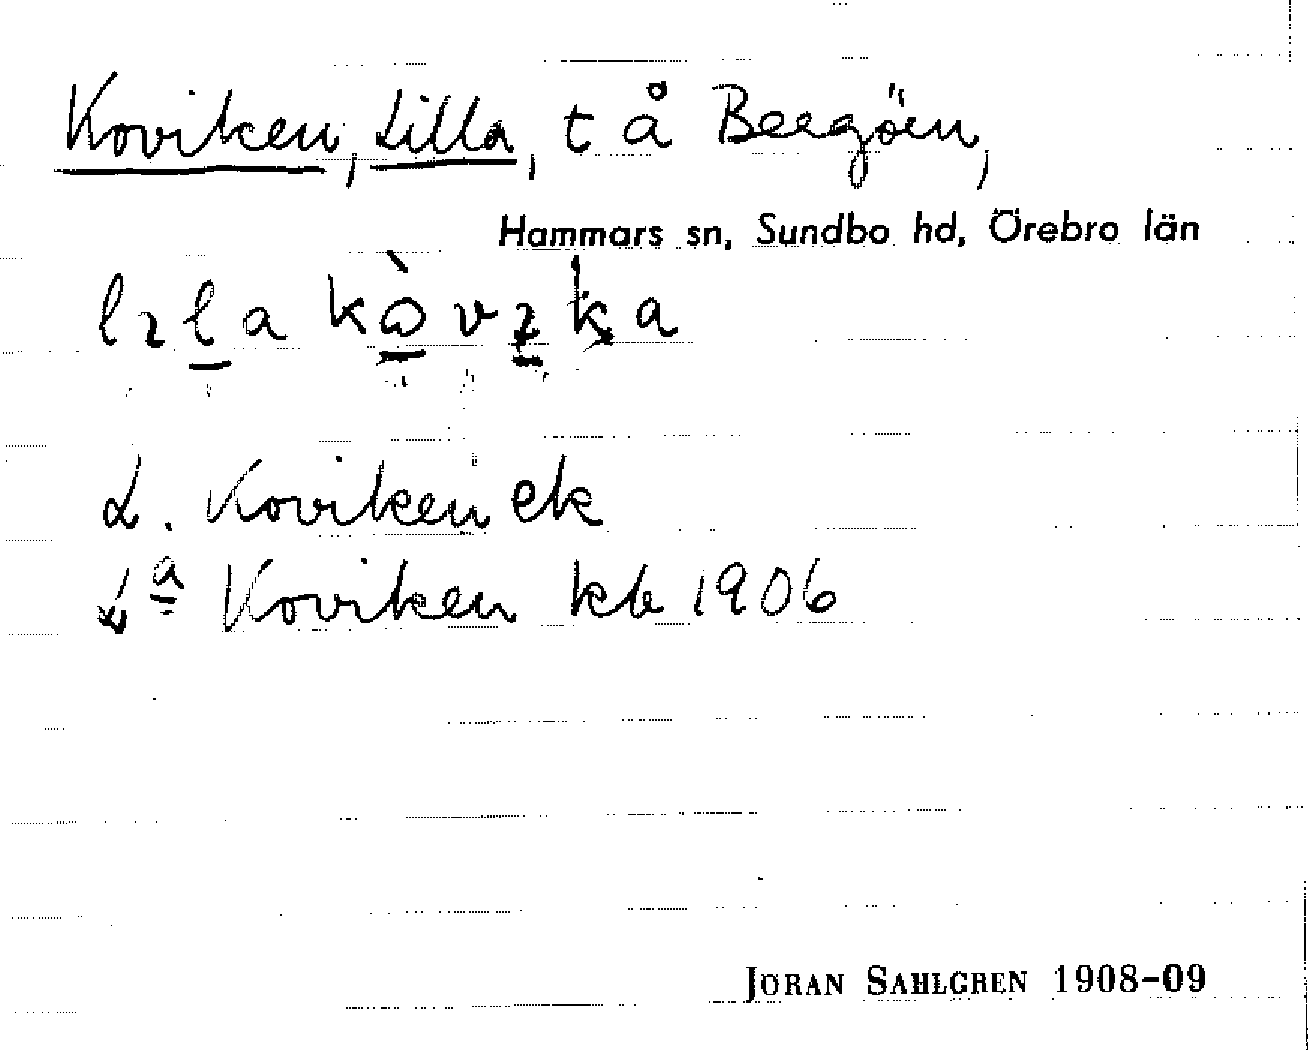 Koviken, Lilla, t å Bergöen,
Hammars sn, Sundbo hd, Örebro län
L. Koviken ek
Lª Koviken kb 1906
JÖRAN SAHLGREN 1908-09